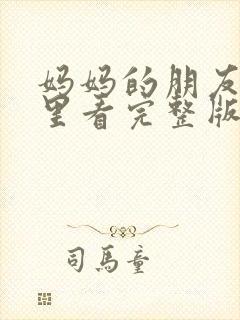 妈妈的朋友
里看完整版
司馬童